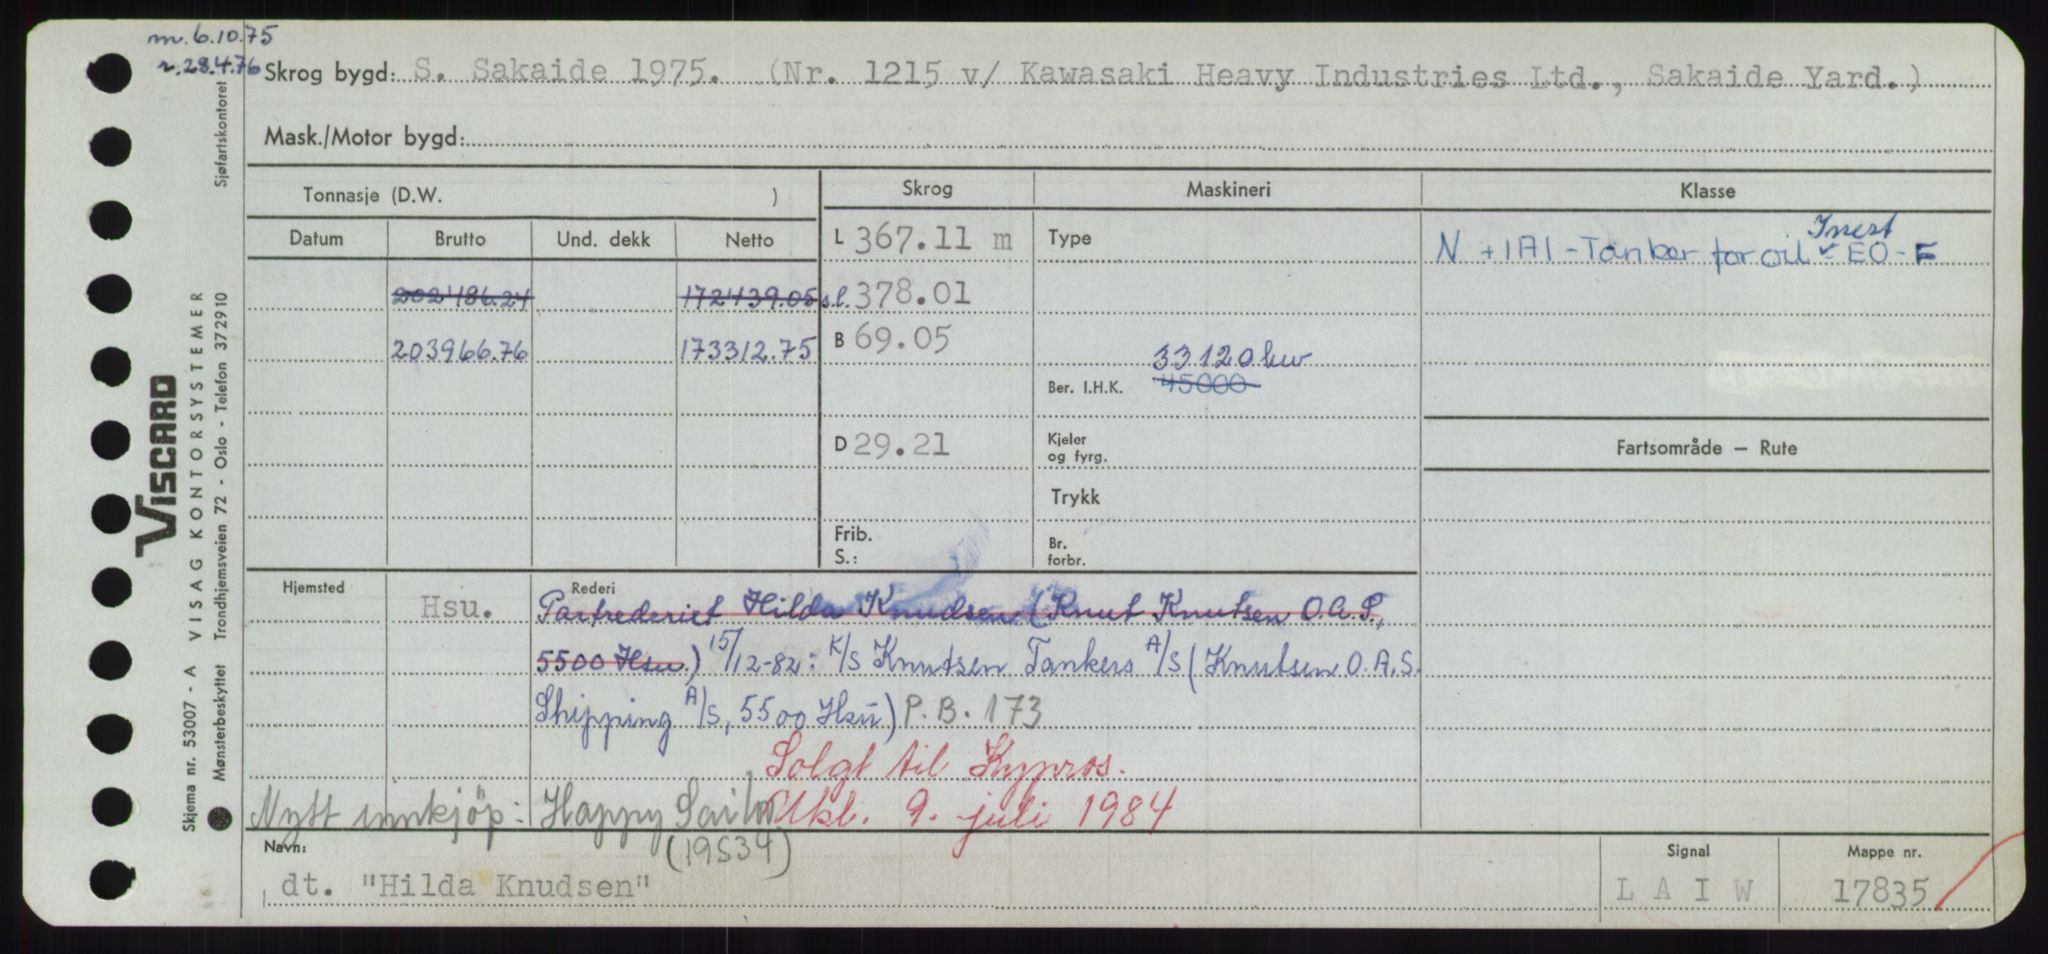 m. 6.10.75
r. 28.4.76
Skrog bygd: S. Sakaide 1975. (Nr. 1215 v/ Kawasaki Heavy Industries Ltd., Sakaide Yard.)
Mask./Motor bygd:
Tonnasje (D.W. )
Skrog
Maskineri
Klasse
Datum
Brutto
Und. dekk
Netto
L 367.11 m
Type
N +1A1 - Tanker for oil Inert EO-F
202486.24
172439.05
s.l. 378.01
203966.76
173312.75
B 69.05
33120 kw
Ber. I.H.K. 45000
D 29.21
Kjeler
og fyrg.
Fartsområde — Rute
Trykk
Frib.
S.:
Br.
forbr.
Hjemsted
Hsu.
Rederi
Partrederiet Hilda Knudsen (Knut Knutsen O.A.S.,
5500 Hsu.) 15/12-82: K/S Knutsen Tankers A/S (Knutsen O.A.S.
Shipping A/S, 5500 Hsu) P.B. 173
Solgt til Kypros.
Nytt innkjöp: Happy Sailor
Ukl. 9. juli 1984
(19534)
Navn:
dt. "Hilda Knudsen"
Signal
L A I W
Mappe nr.
17835
Sjøfartskontoret
VISCARD
Skjema nr. 53007 - A VISAG KONTORSYSTEMER
Mønsterbeskyttet Trondhjemsveien 72 - Oslo - Telefon 372910